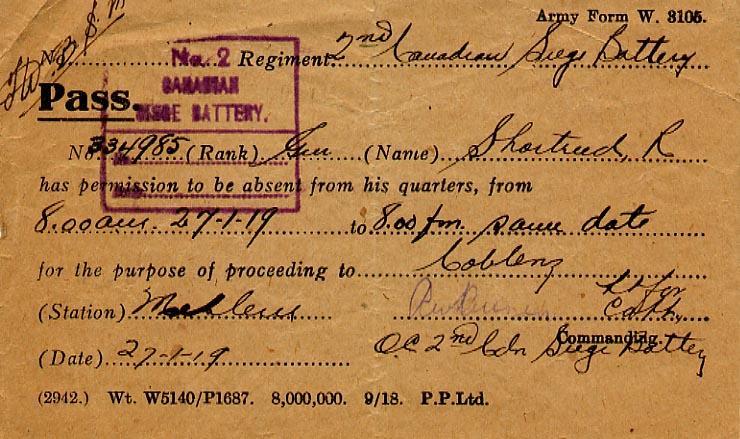 Army Form W. 3105.
No. Regiment 2nd Canadian Siege Battery
No. 2
CANADIAN
SIEGE BATTERY.
Pass.
No. 334985 (Rank) Gnr (Name) Shortreed, R
has permission to be absent from his quarters, from
8.00am 27-1-19 to 8.00 pm same date
for the purpose of proceeding to Coblenz
(Station) Lt for
Capt.
(Date) 27-1-19 Commanding.
O.C. 2nd Cdn Siege Battery
(2942.) Wt. W5140/P1687. 8,000,000. 9/18. P.P.Ltd.